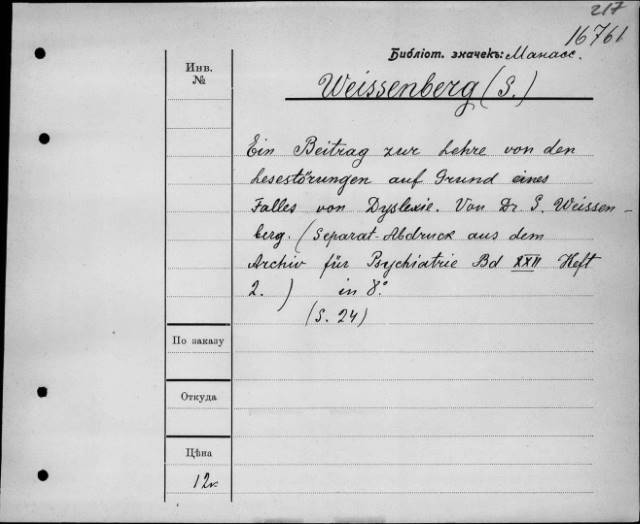 217
16761
Библіот. значекъ: Манасс.
Инв.
№
Weissenberg (S.)
Ein Beitrag zur Lehre von den
Lesestörungen auf Grund eines
Falles von Dyslexie. Von Dr. S. Weissen-
berg. (Separat-Abdruck aus dem
Archiv für Psychiatrie Bd XXII Heft
2.) in 8°.
(S. 24)
По заказу
Откуда
Цѣна
12к